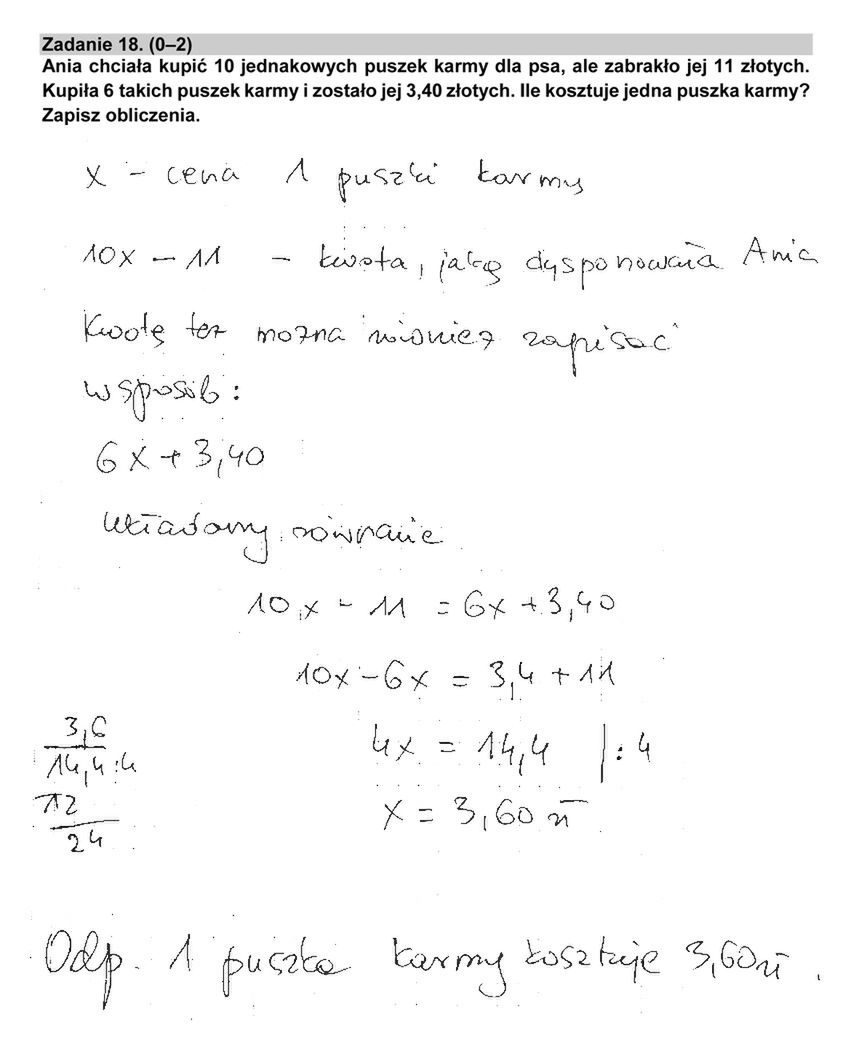 Zadanie 18. (0–2)
Ania chciała kupić 10 jednakowych puszek karmy dla psa, ale zabrakło jej 11 złotych.
Kupiła 6 takich puszek karmy i zostało jej 3,40 złotych. Ile kosztuje jedna puszka karmy?
Zapisz obliczenia.
x – cena 1 puszki karmy
10x – 11 – kwota, jaką dysponowała Ania
Kwotę tez można również zapisać
w sposób:
6x + 3,40
Układamy równanie
10x - 11 = 6x + 3,40
10x - 6x = 3,4 + 11
4x = 14,4 | : 4
x = 3,60 zł
3,6
14,4 : 4
12
24
Odp. 1 puszka karmy kosztuje 3,60 zł.